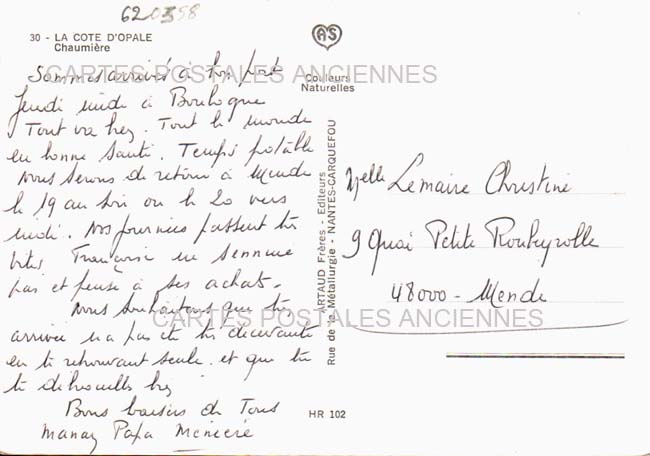 620358
30 - LA COTE D'OPALE
Chaumière
AS
Couleurs
Naturelles
CARTES POSTALES ANCIENNES
Sommes arrivés à bon port
Jeudi midi à Boulogne
Tout va bien. Tout le monde
en bonne santé. Temps potable
Nous serons de retour à Mende
le 19 au soir ou le 20 vers
midi. Nos journées passent très
vites Françoise ne s'ennuie
pas et pense à ses achats.
Nous souhaitons que ton
arrivée n'a pas été très décevante
en te retrouvant seule. et que tu
te débrouilles bien
Bons baisers de Tous
Maman Papa
ARTAUD Frères - Editeurs
Rue de la Métallurgie - NANTES-CARQUEFOU
Melle Lemaire Christine
9 Quai Petite Roubeyrolle
48000 - Mende
CARTES POSTALES ANCIENNES
HR 102